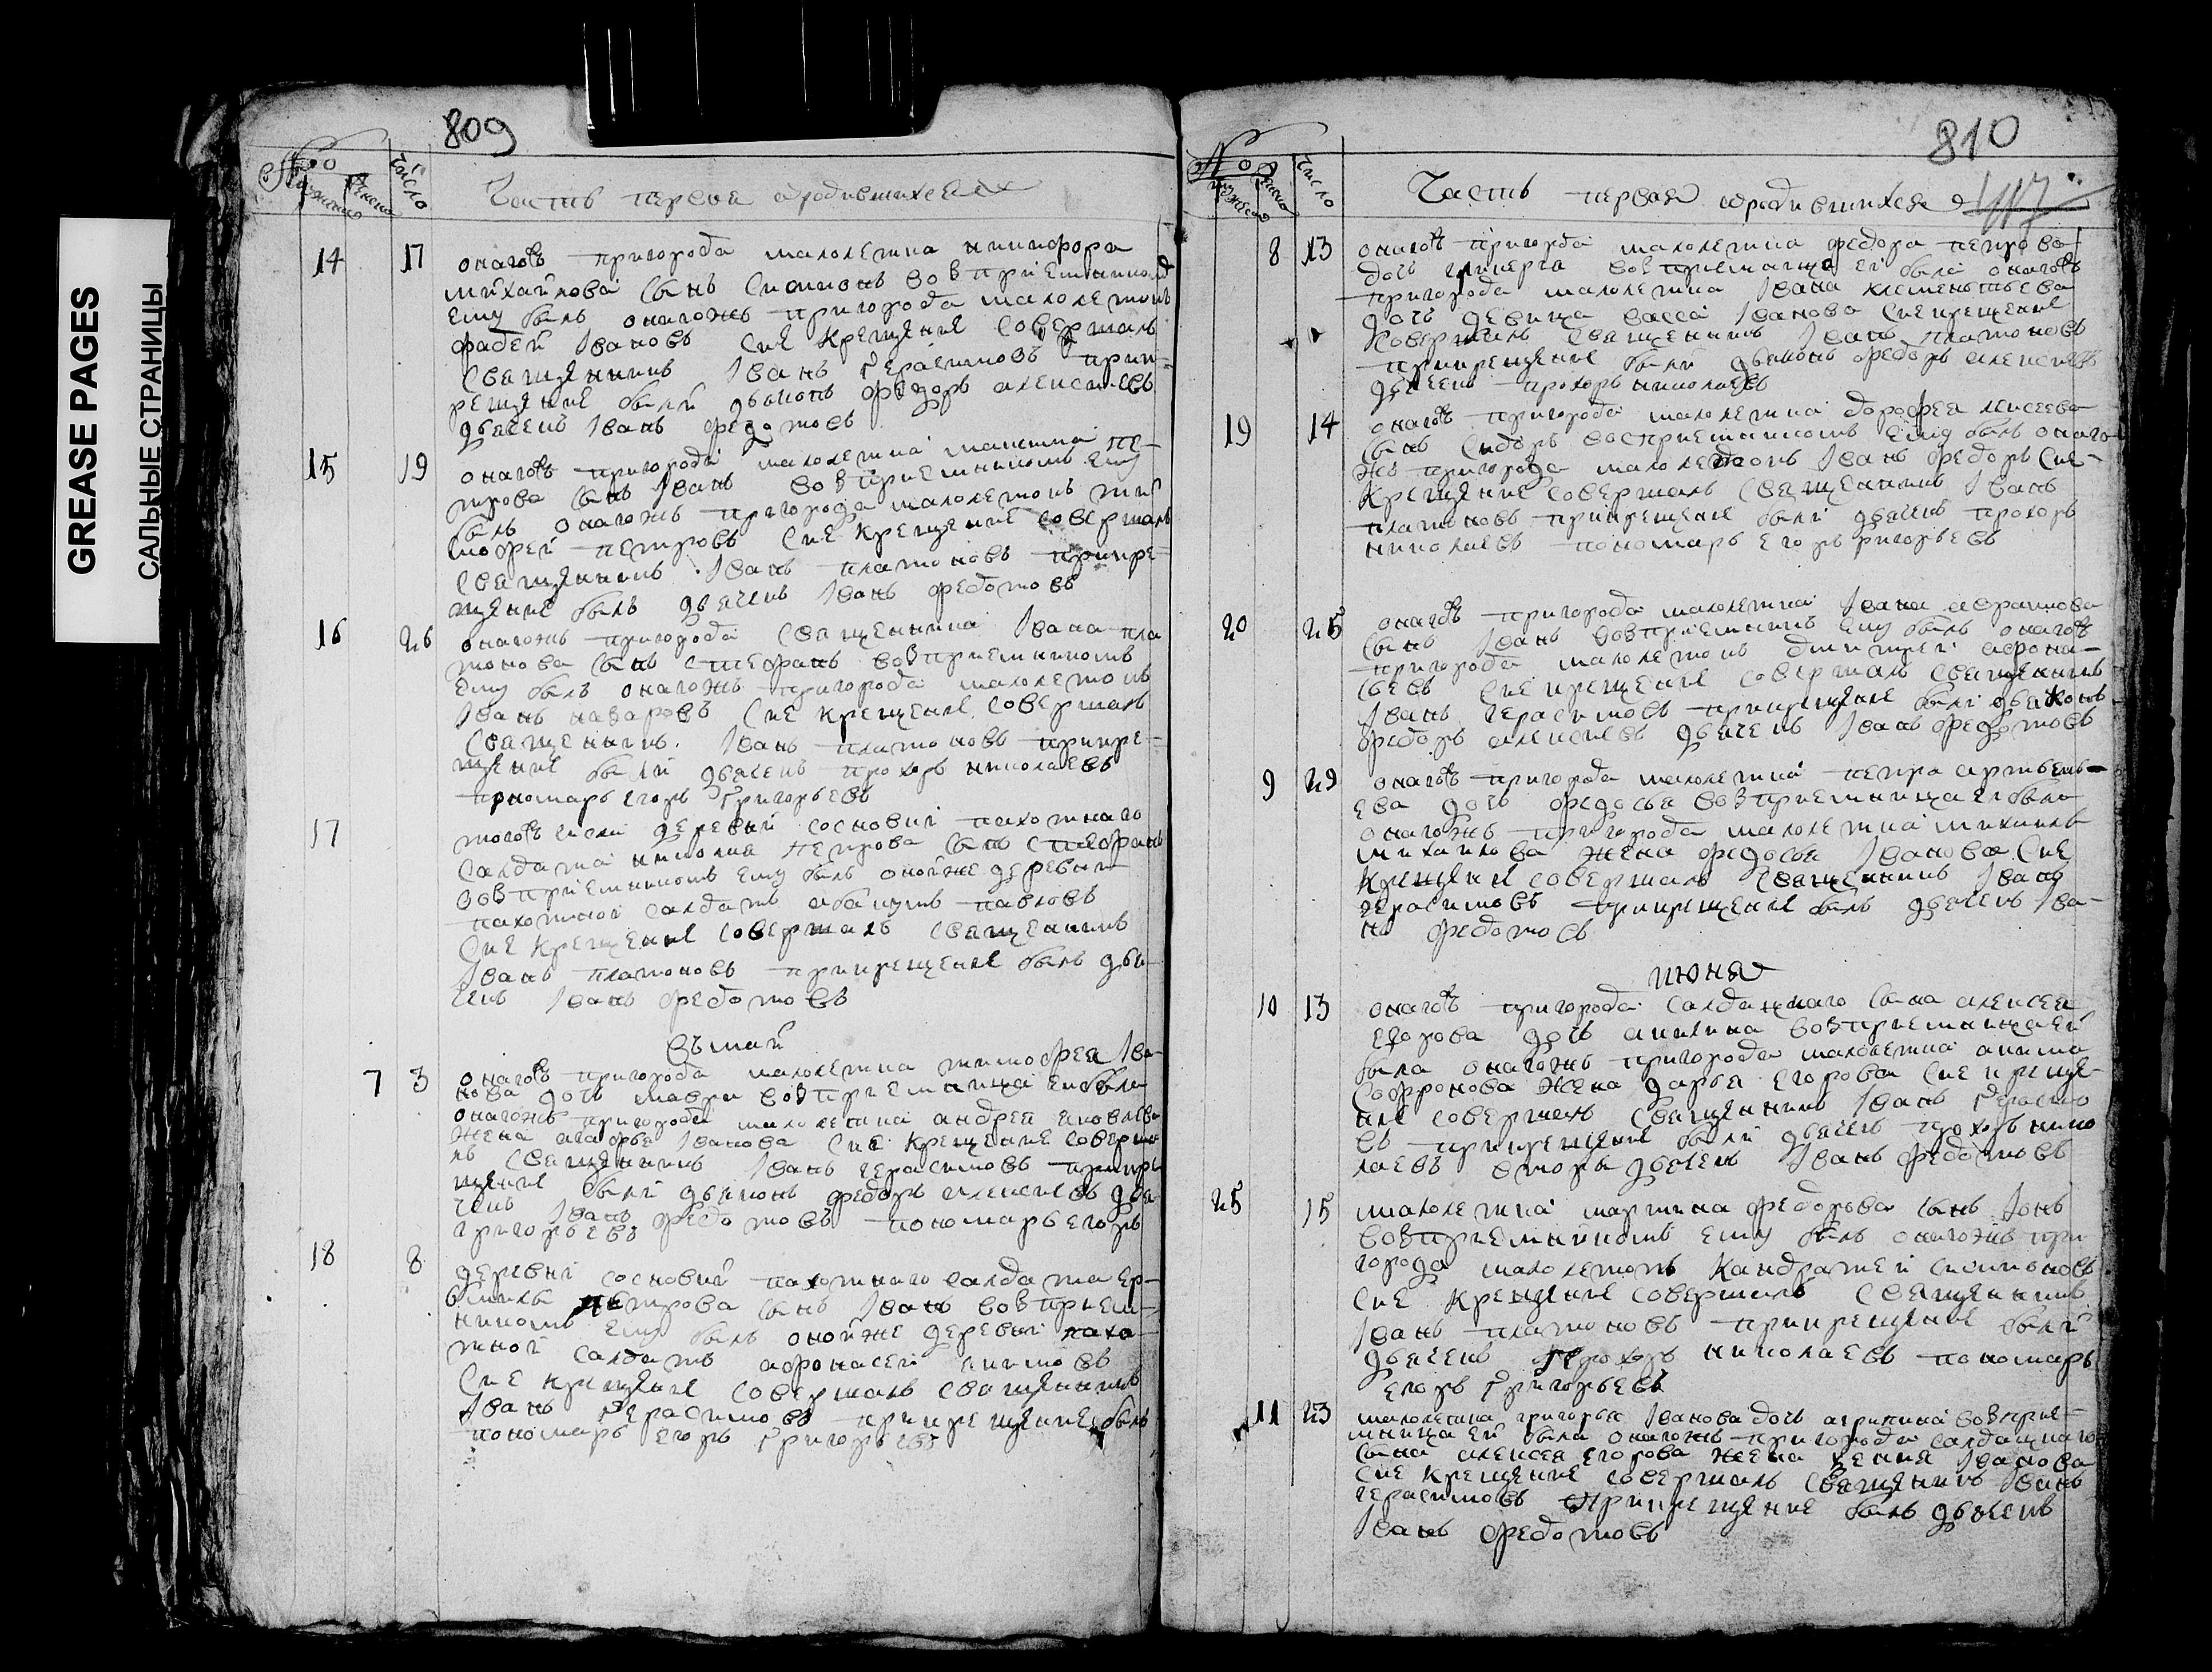 GREASE PAGES
САЛЬНЫЕ СТРАНИЦЫ
809
No
число
Часть первая ородившихся
14 17 оногожъ пригорода малолетка никифора
михайлова сынъ симионъ возприемникомъ
ему былъ оногожъ пригорода малолетокъ
фадей Iвановъ сие крещение совершалъ
священникъ Iванъ герасимовъ прик
рещение были дьяконъ федоръ алексиевъ
дьячекъ Iванъ федотовъ
15 19 оногожъ пригорода малолетка пе
трова сынъ Iванъ возприемникомъ ему
былъ оногожъ пригорода малолетокъ ти
мофей петровъ сие крещение совершалъ
священникъ Iванъ платоновъ прикре
щение былъ дьячекъ Iванъ федотовъ
16 26 оногожъ пригорода священника Iвана пла
тонова сынъ стефанъ возприемникомъ
ему былъ оногожъ пригорода малолетокъ
Iванъ назаровъ сие крещение совершалъ
священникъ Iванъ платоновъ прикре
щение были дьячекъ прохоръ николаевъ
пономарь егоръ григорьевъ
17 тогожъ числа деревни сосновки пахотнаго
салдата петрова сынъ стефанъ
возприемникомъ ему былъ онойже деревни
пахотной салдатъ абакумъ павловъ
сие крещение совершалъ священникъ
Iванъ платоновъ прикрещение былъ дья
чекъ Iванъ федотовъ
въ маи
7 3 оногожъ пригорода малолетка тимофея Iва
нова дочь мавра возприемница ей была
оногожъ пригорода малолетка андрея яковлева
жена агафья Iванова сие крещение соверша
лъ священникъ Iванъ герасимовъ прикре
щение были дьяконъ федоръ алексиевъ дья
чекъ Iванъ федотовъ пономарь егоръ
григорьевъ
18 8 деревни сосновки пахотнаго салдата ер
петрова сынъ Iванъ возприем
никомъ ему былъ онойже деревни пахо
тной салдатъ афонасей
сие крещение совершалъ священникъ
Iванъ герасимовъ прикрещение былъ
пономарь егоръ григорьевъ
810
No
число
Часть первая ородившихся
8 13 оногожъ пригорода малолетка федора петрова
дочь возприемница ей была оногожъ
пригорода малолетка Iвана клементьева
дочь девица васса Iванова сие крещение
совершалъ священникъ Iванъ платоновъ
прикрещение были дьяконъ федоръ алексиевъ
дьячекъ прохоръ николаевъ
19 14 оногожъ пригорода малолетка дорофея
сынъ сидоръ восприемникомъ ему былъ оного
жъ пригорода малолетокъ Iванъ федоръ сие
крещение совершалъ священникъ Iванъ
платоновъ прикрещение были дьячекъ прохоръ
николаевъ пономарь егоръ григорьевъ
20 25 оногожъ пригорода малолетка Iвана абрамова
сынъ Iванъ возприемникъ ему былъ оногожъ
пригорода малолетокъ дмитрей афона
сьевъ сие крещение совершалъ священникъ
Iванъ герасимовъ прикрещение были дьяконъ
федоръ алексиевъ дьячекъ Iванъ федотовъ
9 29 оногожъ пригорода малолетка петра артемь
ева дочь федосья возприемница ей была
оногожъ пригорода малолетка
михайлова жена федосья Iванова сие
крещение совершалъ священникъ Iванъ
герасимовъ прикрещение былъ дьячекъ Iва
нъ федотовъ
июня
10 13 оногожъ пригорода салдацкаго сына алексея
егорова дочь акилина возприемница ей
была оногожъ пригорода малолетка акима
софронова жена дарья егорова сие креще
ние совершалъ священникъ Iванъ герасимо
въ прикрещение были дьячекъ прохоръ нико
лаевъ дьячекъ Iванъ федотовъ
25 15 малолетка мартина федорова сынъ
возприемникомъ ему былъ оногожъ при
города малолетокъ кандратей симионовъ
сие крещение совершалъ священникъ
Iванъ платоновъ прикрещение были
дьячекъ прохоръ николаевъ пономарь
егоръ григорьевъ
11 23 малолетка григорья Iванова дочь агрипина возприе
мница ей была оногожъ пригорода салдацкаго
сына алексея егорова жена Iванова
сие крещение совершалъ священникъ Iванъ
герасимовъ прикрещение былъ дьячекъ
Iванъ федотовъ